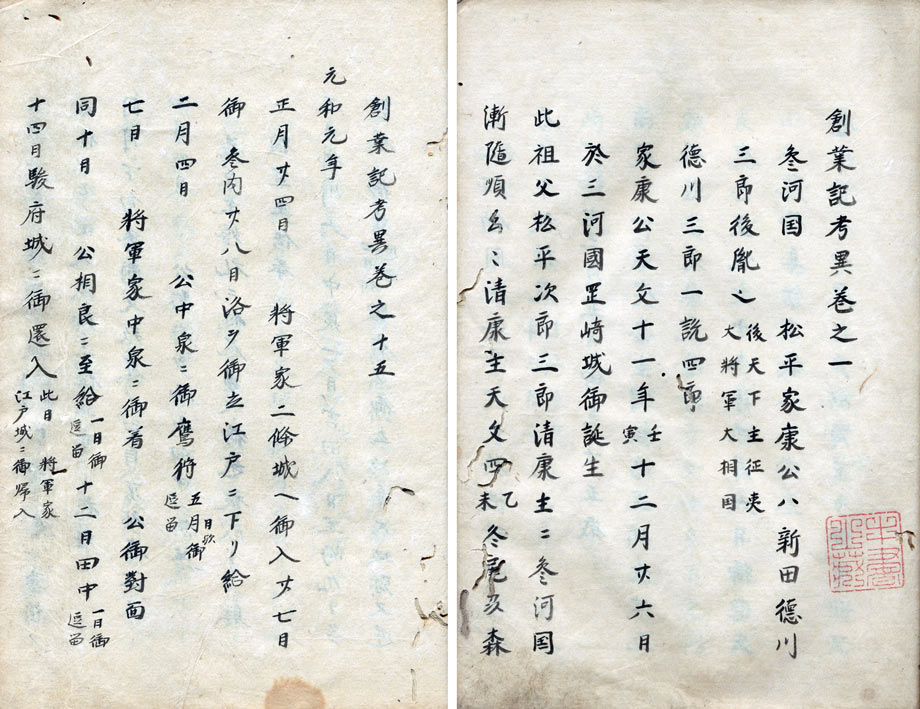 創業記考異巻之一
参河国 松平家康公ハ新田徳川
三郎後胤也 後天下主征夷
大将軍大相国
徳川三郎一説四郎
家康公天文十一年 壬
寅 十二月廿六日
於三河國罡﨑城御誕生
此祖父松平次郎三郎清康主ニ参河国
漸隨順ㇲニ清康主天文四 乙
未 冬 森
創業記考異巻之十五
元和元年
正月廿四日 将軍家二條城ヘ御入廿七日
御参内廿八日洛ヲ御立江戸ニ下リ給
二月四日 公中泉ニ御鷹狩 五日
月欤御
逗留
七日 将軍家中泉ニ御着 公御對面
同十日 公相良ニ至給 一日御
逗留 十二日田中 一日御
逗留
十四日駿府城ニ御還入 此日将軍家
江戸城ニ御帰入